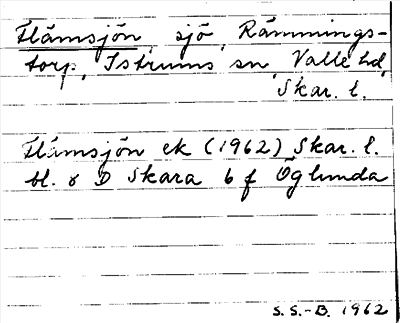 Flämsjön, sjö, Rämnings-
torp, Istrums sn, Valle hd,
Skar. l.
Flämsjön ek (1962) Skar. l.
bl. 8 D Skara 6 f Öglunda
S.S.-B. 1962